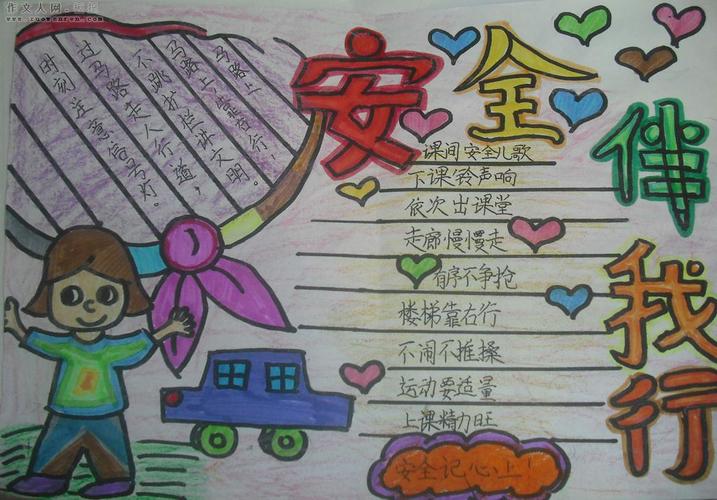 作文人网
www.zuowenren.com
安全伴我行
马路上,靠右行,
马路上,
不跳护栏讲文明。
过马路走人行道,
时刻注意信号灯。
课间安全儿歌
下课铃声响
依次出课堂
走廊慢慢走
有序不争抢
楼梯靠右行
不闹不推搡
运动要适量
上课精力旺
安全记心上!